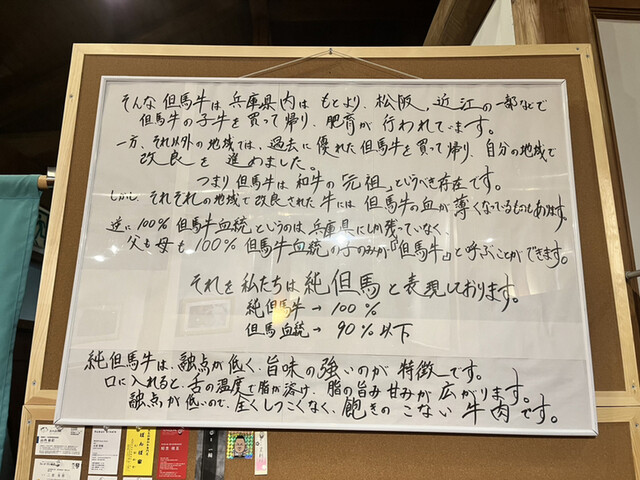 そんな但馬牛は兵庫県内はもとより、松阪、近江の一部などで
但馬牛の子牛を買って帰り、肥育が行われています。
一方、それ以外の地域では、過去に優れた但馬牛を買って帰り、自分の地域で
改良を進めました。
つまり但馬牛は和牛の「元祖」というべき存在です。
しかし、それぞれの地域で改良された牛には但馬牛の血が薄くなっているものもあります。
逆に100%但馬牛血統というのは兵庫県にしか残っていなく、
父も母も100%但馬牛血統の子のみが『但馬牛』と呼ぶことができます。
それを私たちは純但馬と表現しております。
純但馬牛→100%
但馬血統→90%以下
純但馬牛は、融点が低く、旨味の強いのが特徴です。
口に入れると、舌の温度で脂が溶け、脂の旨み甘みが広がります。
融点が低いので、全くしつこくなく、飽きのこない牛肉です。